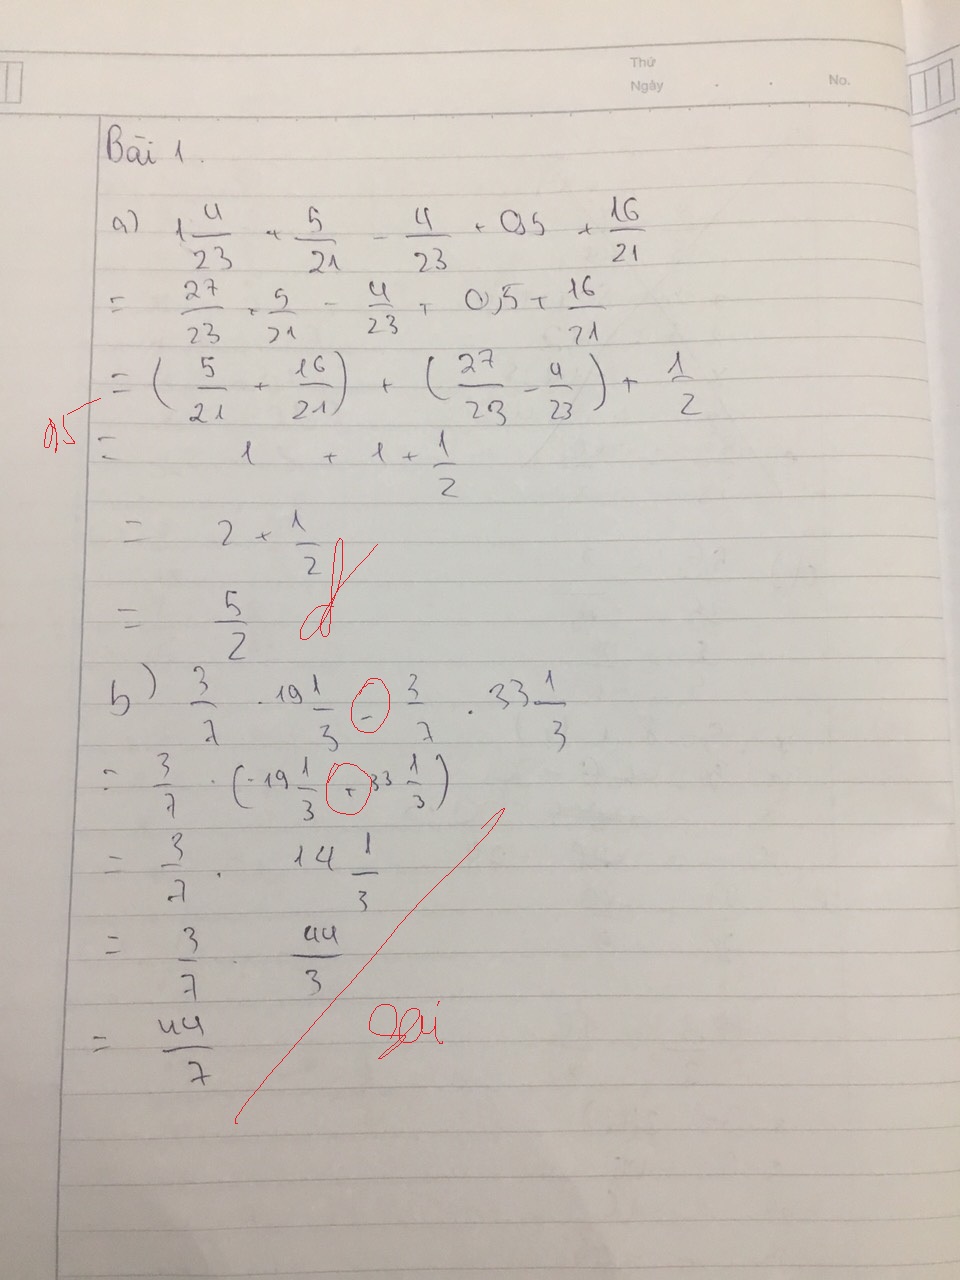 Thứ
Ngày . . No.
Bài 1.
a) 1 4/23 + 5/21 - 4/23 + 0,5 + 16/21
= 27/23 + 5/21 - 4/23 + 0,5 + 16/21
= (5/21 + 16/21) + (27/23 - 4/23) + 1/2
0,5
= 1 + 1 + 1/2
= 2 + 1/2
= 5/2 đ
b) 3/7 . 19 1/3 - 3/7 . 33 1/3
= 3/7 . (-19 1/3 + 33 1/3)
= 3/7 . 14 1/3
= 3/7 . 44/3
= 44/7
Sai